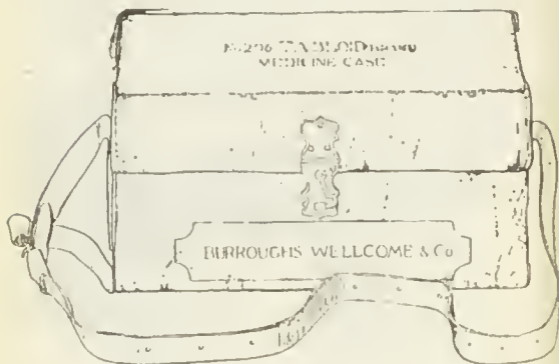 No 206 'TABLOID' BRAND
MEDICINE CASE
BURROUGHS WELLCOME & Co